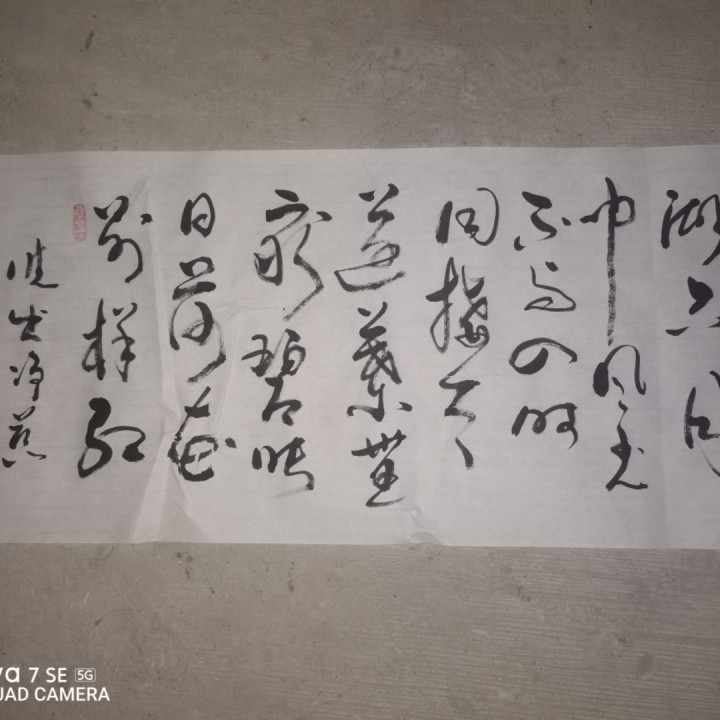 湖六月
中风光
不与四时
同接天
莲葉無
穷碧映
日荷花
别样红
晓出净慈
va 7 SE 5G
UAD CAMERA